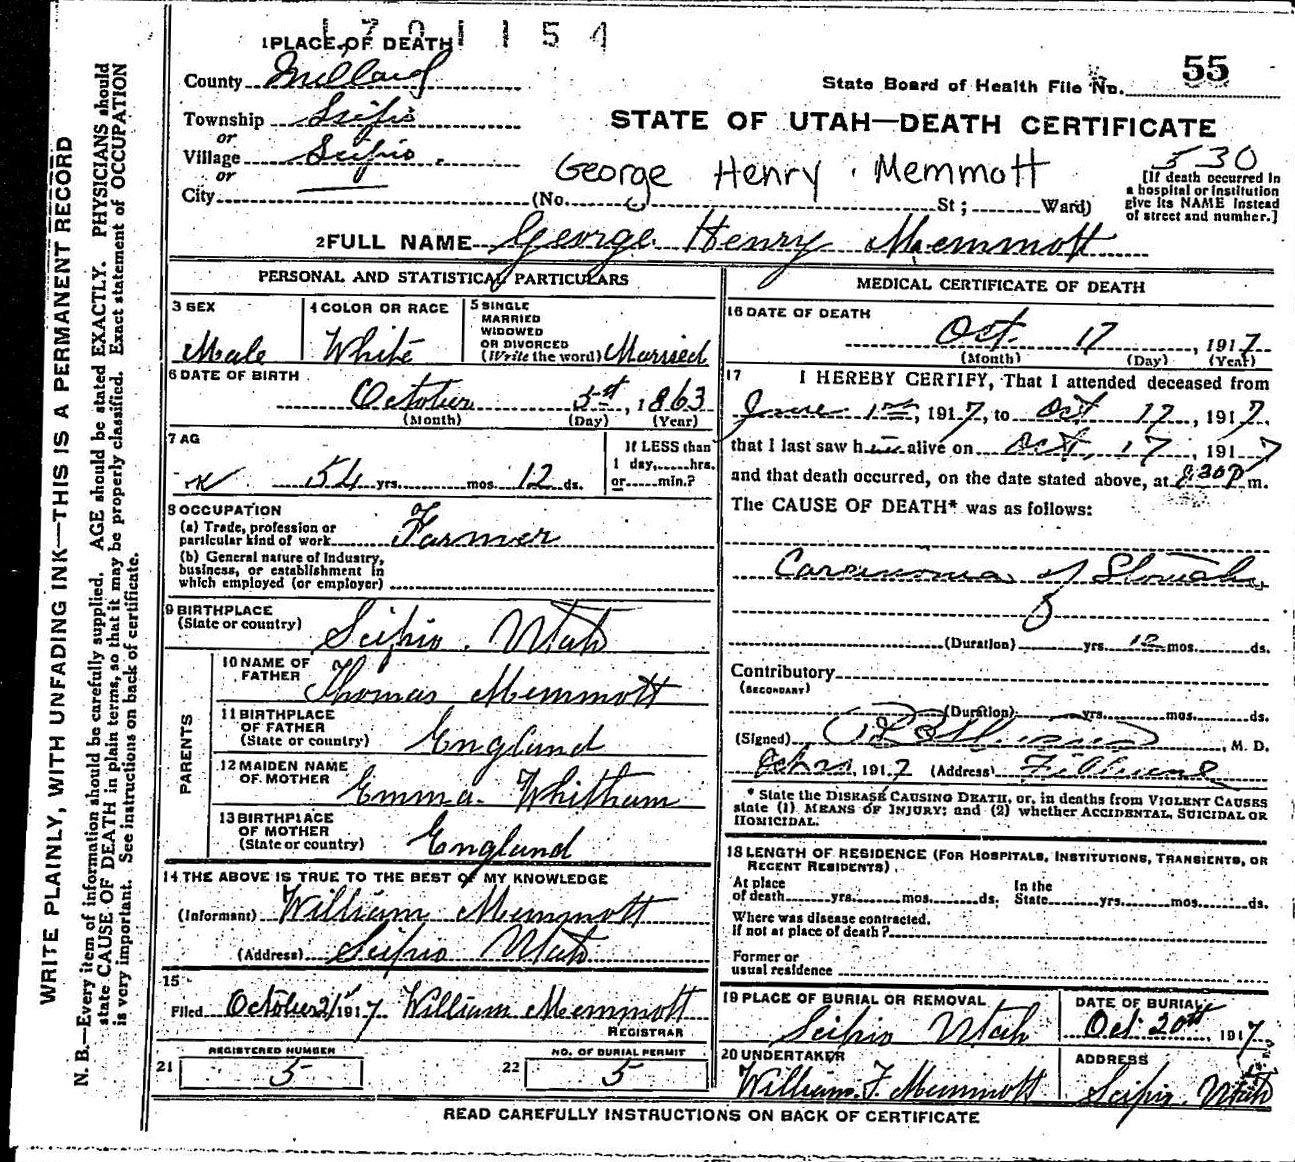 1701154
1 PLACE OF DEATH
County Millard
State Board of Health File No. 55
Township Scipio
or
Village Scipio.
or
City
STATE OF UTAH—DEATH CERTIFICATE
George Henry Memmott
530
[If death occurred in a hospital or institution give its NAME instead of street and number.]
(No. St; Ward)
2 FULL NAME George Henry Memmott
PERSONAL AND STATISTICAL PARTICULARS
3 SEX
Male
4 COLOR OR RACE
White
5 SINGLE
MARRIED
WIDOWED
OR DIVORCED
(Write the word) Married
6 DATE OF BIRTH
October 5st, 1863
(Month) (Day) (Year)
7 AG
54 yrs. mos. 12 ds.
If LESS than
1 day, hrs.
or min.?
8 OCCUPATION
(a) Trade, profession or
particular kind of work Farmer
(b) General nature of Industry,
business, or establishment in
which employed (or employer)
9 BIRTHPLACE
(State or country) Scipio. Utah
PARENTS
10 NAME OF
FATHER Thomas Memmott
11 BIRTHPLACE
OF FATHER
(State or country) England
12 MAIDEN NAME
OF MOTHER Emma. Whitham
13 BIRTHPLACE
OF MOTHER
(State or country) England
14 THE ABOVE IS TRUE TO THE BEST OF MY KNOWLEDGE
(Informant) William Memmott
(Address) Scipio Utah
15
Filed October 21st 1917 William Memmott
REGISTRAR
21 REGISTERED NUMBER
5
22 NO. OF BURIAL PERMIT
5
MEDICAL CERTIFICATE OF DEATH
16 DATE OF DEATH
Oct. 17, 1917
(Month) (Day) (Year)
17 I HEREBY CERTIFY, That I attended deceased from
June 1st, 1917, to Oct 17, 1917.
that I last saw him alive on Oct. 17, 1917
and that death occurred, on the date stated above, at 830P m.
The CAUSE OF DEATH* was as follows:
Carcinoma of Stomach
(Duration) yrs. 12 mos. ds.
Contributory
(SECONDARY)
(Duration) yrs. mos. ds.
(Signed) M. D.
1917 (Address) Fillmore
* State the DISEASE CAUSING DEATH, or, in deaths from VIOLENT CAUSES
state (1) MEANS OF INJURY; and (2) whether ACCIDENTAL, SUICIDAL OR
HOMICIDAL.
18 LENGTH OF RESIDENCE (FOR HOSPITALS, INSTITUTIONS, TRANSIENTS, OR
RECENT RESIDENTS).
At place
of death yrs. mos. ds.
In the
State yrs. mos. ds.
Where was disease contracted,
if not at place of death?
Former or
usual residence
19 PLACE OF BURIAL OR REMOVAL
Scipio Utah
DATE OF BURIAL
Oct. 20th, 1917
20 UNDERTAKER
William. F. Memmott
ADDRESS
Scipio. Utah
READ CAREFULLY INSTRUCTIONS ON BACK OF CERTIFICATE
WRITE PLAINLY, WITH UNFADING INK—THIS IS A PERMANENT RECORD
N. B.—Every item of information should be carefully supplied. AGE should be stated EXACTLY. PHYSICIANS should
state CAUSE OF DEATH in plain terms, so that it may be properly classified. Exact statement of OCCUPATION
is very important. See instructions on back of certificate.